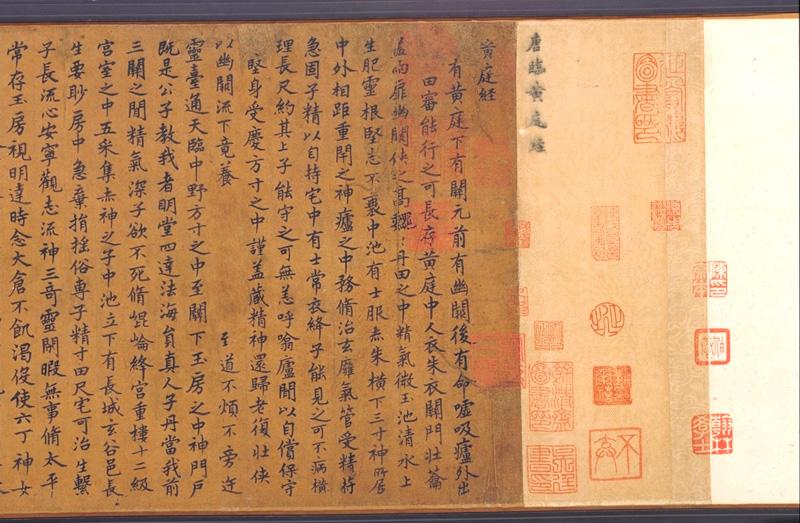 唐臨黃庭經
黃庭經
有黃庭下有關元前有幽闕後有命噓吸廬外出
田審能行之可長存黃庭中人衣朱衣關門壯籥
兩扉幽闕俠之高巍丹田之中精氣微玉池清水上
生肥靈根堅志不衰中池有士服赤朱橫下三寸神所居
中外相距重閇之神廬之中務脩治玄雍氣管受精符
急固子精以自持宅中有士常衣絳子能見之可不病橫
理長尺約其上子能守之可無恙呼翕廬間以自償保守
堅身受慶方寸之中謹蓋藏精神還歸老復壯俠
以幽闕流下竟養 至道不煩不旁迕
靈臺通天臨中野方寸之中至關下玉房之中神門戶
既是公子教我者明堂四達法海員真人子丹當我前
三關之間精氣深子欲不死脩崐崘絳宮重樓十二級
宮室之中五采集赤神之子中池立下有長城玄谷邑長
生要眇房中急棄捐搖俗專子精寸田尺宅可治生繫
子長流心安寧觀志流神三奇靈閑暇無事脩太平
常存玉房視明達時念大倉不飢渴役使六丁神女